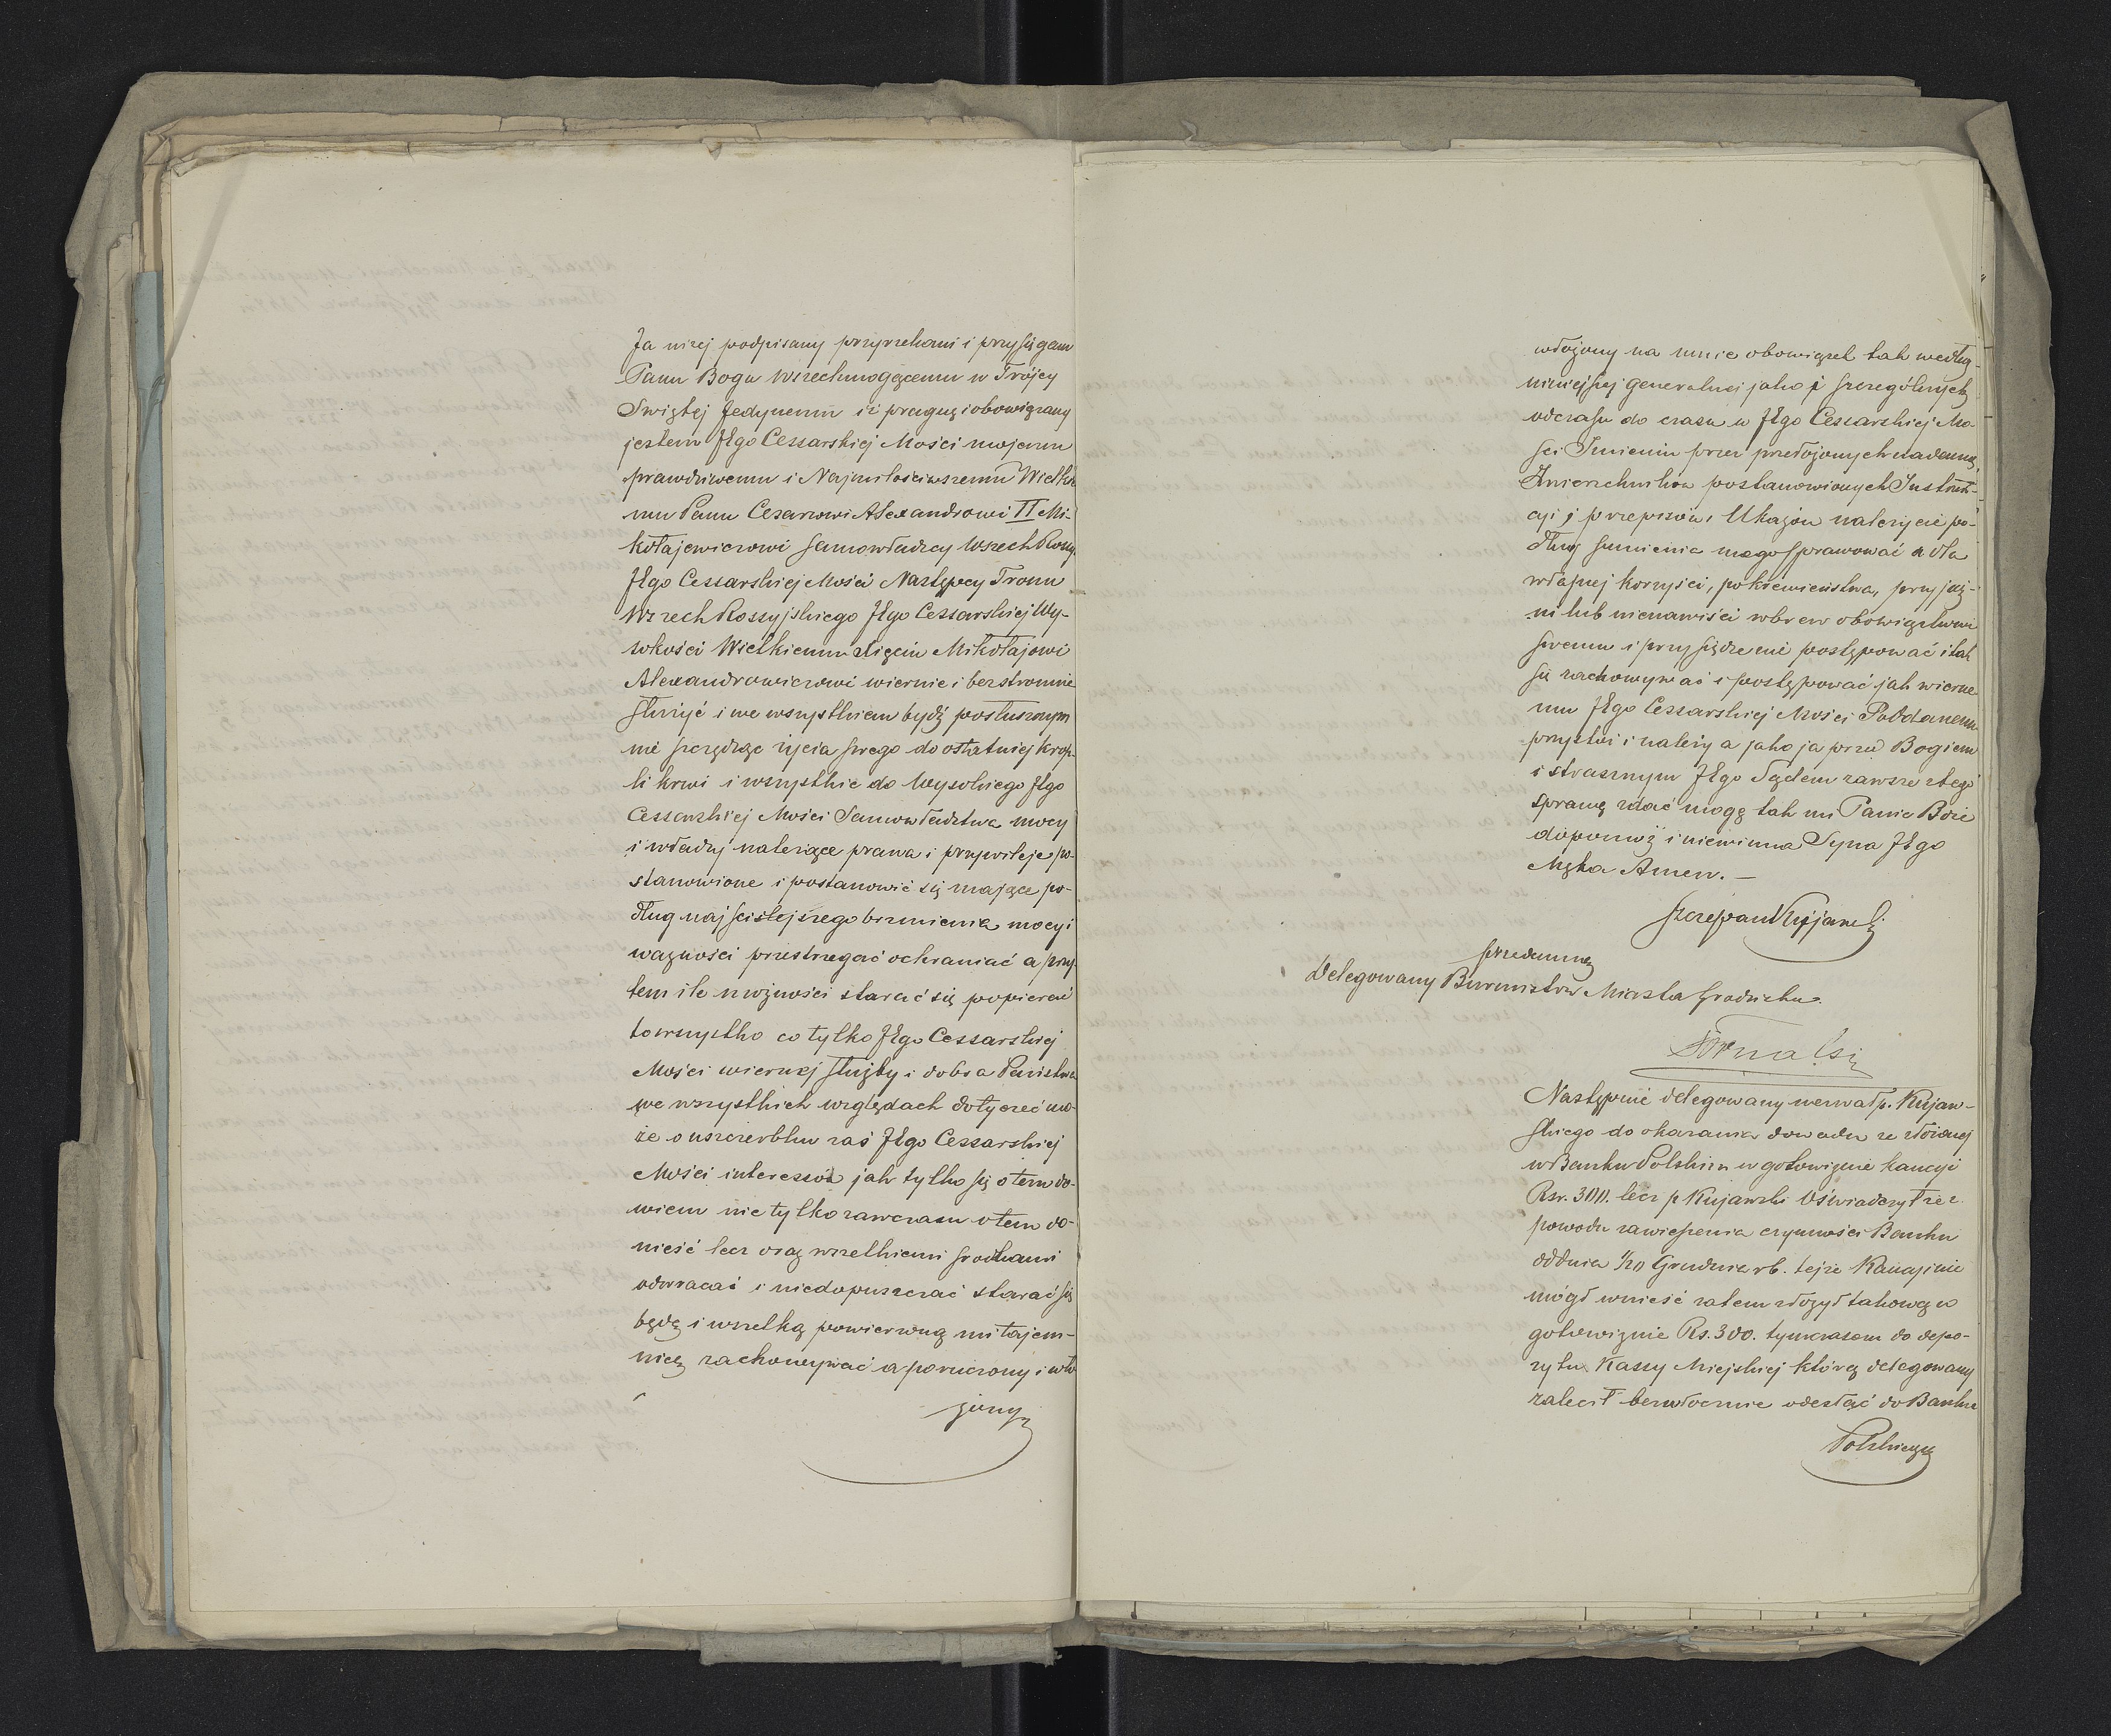 Ja niżej podpisany przyrzekam i przysięgam
Panu Bogu Wszechmogącemu w Trójcy
Swiętej Jedynemu iż pragnę i obowiązany
jestem JEgo Cessarskiej Mości mojemu
prawdziwemu i Najmiłościwszemu Wielkie
mu Panu Cesarzowi Alexandrowi II Mi-
kołajewiczowi Samowładzcy Wszech Rossyi
JEgo Cessarskiej Mości Następcy Tronu
Wszech Rossyjskiego JEgo Cessarskiej Wy-
sokości Wielkiemu Xięciu Mikołajowi
Alexandrowiczowi wiernie i bezstronnie
służyć i we wszystkiem bydź posłusznym
nie szczędząc życia swego do ostatniej krop-
li krwi i wszystkie do Wysokiego JEgo
Cessarskiej Mości Samowładztwa mocy
i władzy należące prawa i przywileje po-
stanowione i postanowić się mające po-
dług najściślejszego brzmienia mocy i
ważności przestrzegać ochraniać a przy
tem ile możności starać się popierać
to wszystko co tylko JEgo Cessarskiej
Mości wiernej służby i dobra Państwa
we wszystkich względach dotyczeć mo-
że o uszczerbku zaś JEgo Cessarskiej
Mości interessów jak tylko się o tem do-
wiem nie tylko zawczasu o tem do-
nieść lecz oraz wszelkiemi środkami
odwracać i niedopuszczać starać się
będę i wszelką powierzoną mi tajem-
nicę zachowywać a poruczony i wło
żony
włożony na mnie obowiązek tak według
niniejszej generalnej jako i szczególnych
od czasu do czasu w JEgo Cessarskiej Mo-
ści Imieniu przez przełożonych nademną
Zwierzchników postanowionych Instruk-
cyi i przepisów i Ukazów należycie po-
dług sumienia mego sprawować a dla
własnej korzyści, pokrewieństwa, przyjaź-
ni lub nienawiści wbrew obowiązkowi
swemu i przysiędze nie postępować i tak
się zachowywać i postępować jak wierne
mu JEgo Cessarskiej Mości Poddanemu
przystoi i należy a jako ja przed Bogiem
i strasznym JEgo Sądem zawsze z tego
sprawę zdać mogę tak mi Panie Boże
dopomóż i niewinna Syna JEgo
Męka Amen. –
Szczepan Kujawski
przedemną
Delegowany Burmistrz Miasta Grodziska
Następnie delegowany wezwał p. Kujaw-
skiego do okazania dowodu ze złożonej
w Banku Polskim w gotowiznie kaucyi
Rsr. 300. lecz p Kujawski Oświadczył że z
powodu zawieszenia czynności Banku
od dnia 1/20 Grudnia rb. tejże Kaucyi nie
mógł wnieść zatem złożył takową w
gotowiznie Rs. 300. tymczasem do depo-
zytu Kassy Miejskiej którą delegowany
zalecił bezwłocznie odesłać do Banku
Polskiego